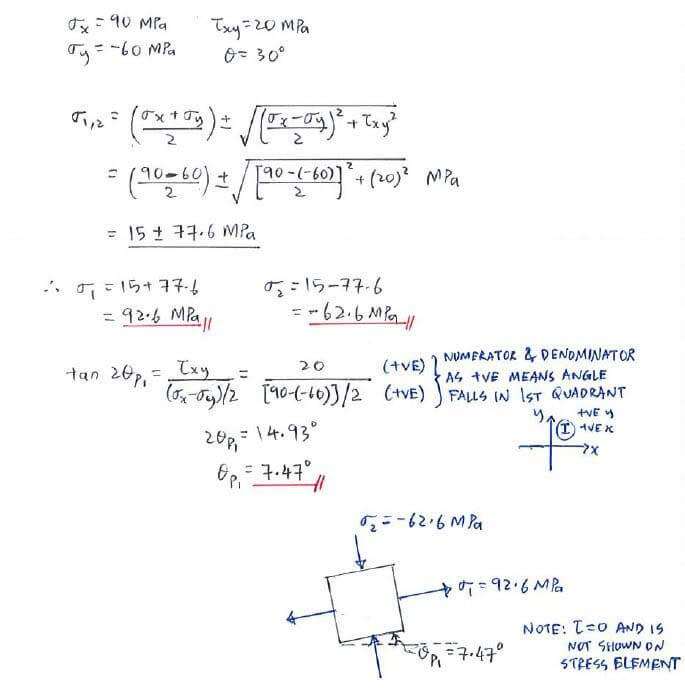 σx = 90 MPa    τxy = 20 MPa
σy = -60 MPa    θ = 30°
σ1,2 = ((σx + σy)/2) ± √(((σx - σy)/2)² + τxy²)
= ((90 - 60)/2) ± √([90 - (-60)]/2]² + (20)²) MPa
= 15 ± 77.6 MPa
∴ σ1 = 15 + 77.6    σ2 = 15 - 77.6
= 92.6 MPa //    = -62.6 MPa //
tan 2θP1 = τxy/((σx - σy)/2) = 20/([90 - (-60)]/2)    (+VE) (+VE) } NUMERATOR & DENOMINATOR
AS +VE MEANS ANGLE
FALLS IN 1ST QUADRANT
2θP1 = 14.93°
θP1 = 7.47° //
y    +VE y
I    +VE x
x
σ2 = -62.6 MPa
σ1 = 92.6 MPa
θP1 = 7.47°
NOTE: τ=0 AND IS
NOT SHOWN ON
STRESS ELEMENT